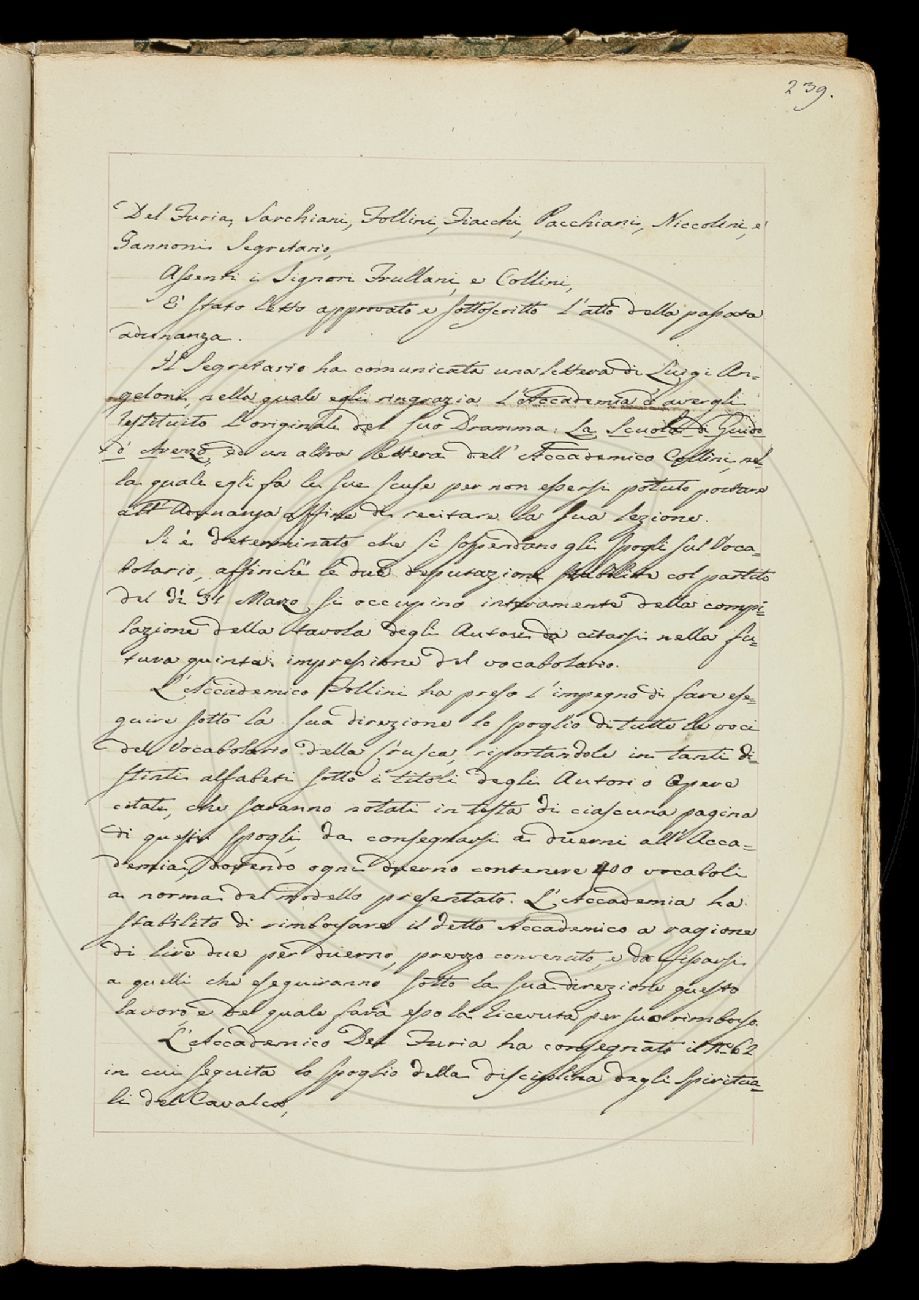 239.
Del Furia, Sarchiani, Follini, Fiacchi, Pacchiani, Niccolini, e
Zannoni Segretario,
Assenti i Signori Frullani, e Collini,
E' stato letto approvato e sottoscritto l'atto della passata
adunanza.
Il Segretario ha comunicata una lettera di Luigi An-
geloni, nella quale egli ringrazia l'Accademia d'avergli
restituito l'originale del suo Dramma: La Scuola di Guido
d'Arezzo, ed un altra lettera dell'Accademico Collini, nel
la quale egli fa le sue scuse per non essersi potuto portare
all'Adunanza affine di recitare la sua lezione.
Si è determinato che si sospendano gli spogli sul Voca-
bolario, affinché le due deputazioni stabilite col partito
del dì 31 Marzo si occupino interamente della compi-
lazione della tavola degli Autori da citarsi nella fu-
tura quinta impressione del vocabolario.
L'Accademico Follini ha preso l'impegno di fare ese-
guire sotto la sua direzione lo spoglio di tutte le voci
del Vocabolario della Crusca, riportandole in tanti di-
stinti alfabeti sotto i titoli degli Autori o Opere
citate, che saranno notati in testa di ciascuna pagina
di questi spogli, da consegnarsi a duerni all'Acca-
demia, dovendo ogni duerno contenere 400 vocaboli
a norma del modello presentato. L'Accademia ha
stabilito di rimborsare il detto Accademico a ragione
di lire due per duerno, prezzo convenuto, e da fissarsi
a quelli che eseguiranno sotto la sua direzione questo
lavoro e del quale farà esso la ricevuta per suo rimborso.
L'Accademico Del Furia ha consegnato il N.° 62
in cui seguita lo spoglio della disciplina degli Spiritua-
li del Cavalca,